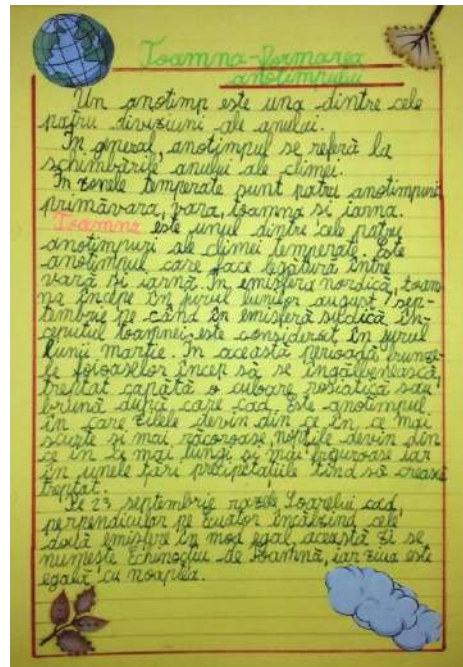 Toamna-formarea
anotimpului
Un anotimp este una dintre cele
patru diviziuni ale anului.
În general, anotimpul se referă la
schimbările anului ale climei.
În zonele temperate sunt patru anotimpuri:
primăvara, vara, toamna si iarna.
Toamna este unul dintre cele patru
anotimpuri ale climei temperate. Este
anotimpul care face legătură între
vară și iarnă. În emisfera nordică, toam
na începe în jurul lunilor august, sep-
tembrie pe când în emisferă sudică în-
ceputul toamnei este considerat în jurul
lunii martie. În această perioadă frunze-
le foioaselor încep să se îngălbenească,
treptat capătă o culoare roșiatică sau
brună după care cad. Este anotimpul
în care zilele devin din ce în ce mai
scurte și mai răcoroase, nopțile devin din
ce în ce mai lungi și mai friguroase iar
în unele țări precipetațiile tind să crească
treptat.
Pe 23 septembrie razele Soarelui cad,
perpendicular pe Ecuator încălzind cele
două emisfere în mod egal, această zi se
numește Echinocțiu de Toamnă, iar ziua este
egală cu noaptea.